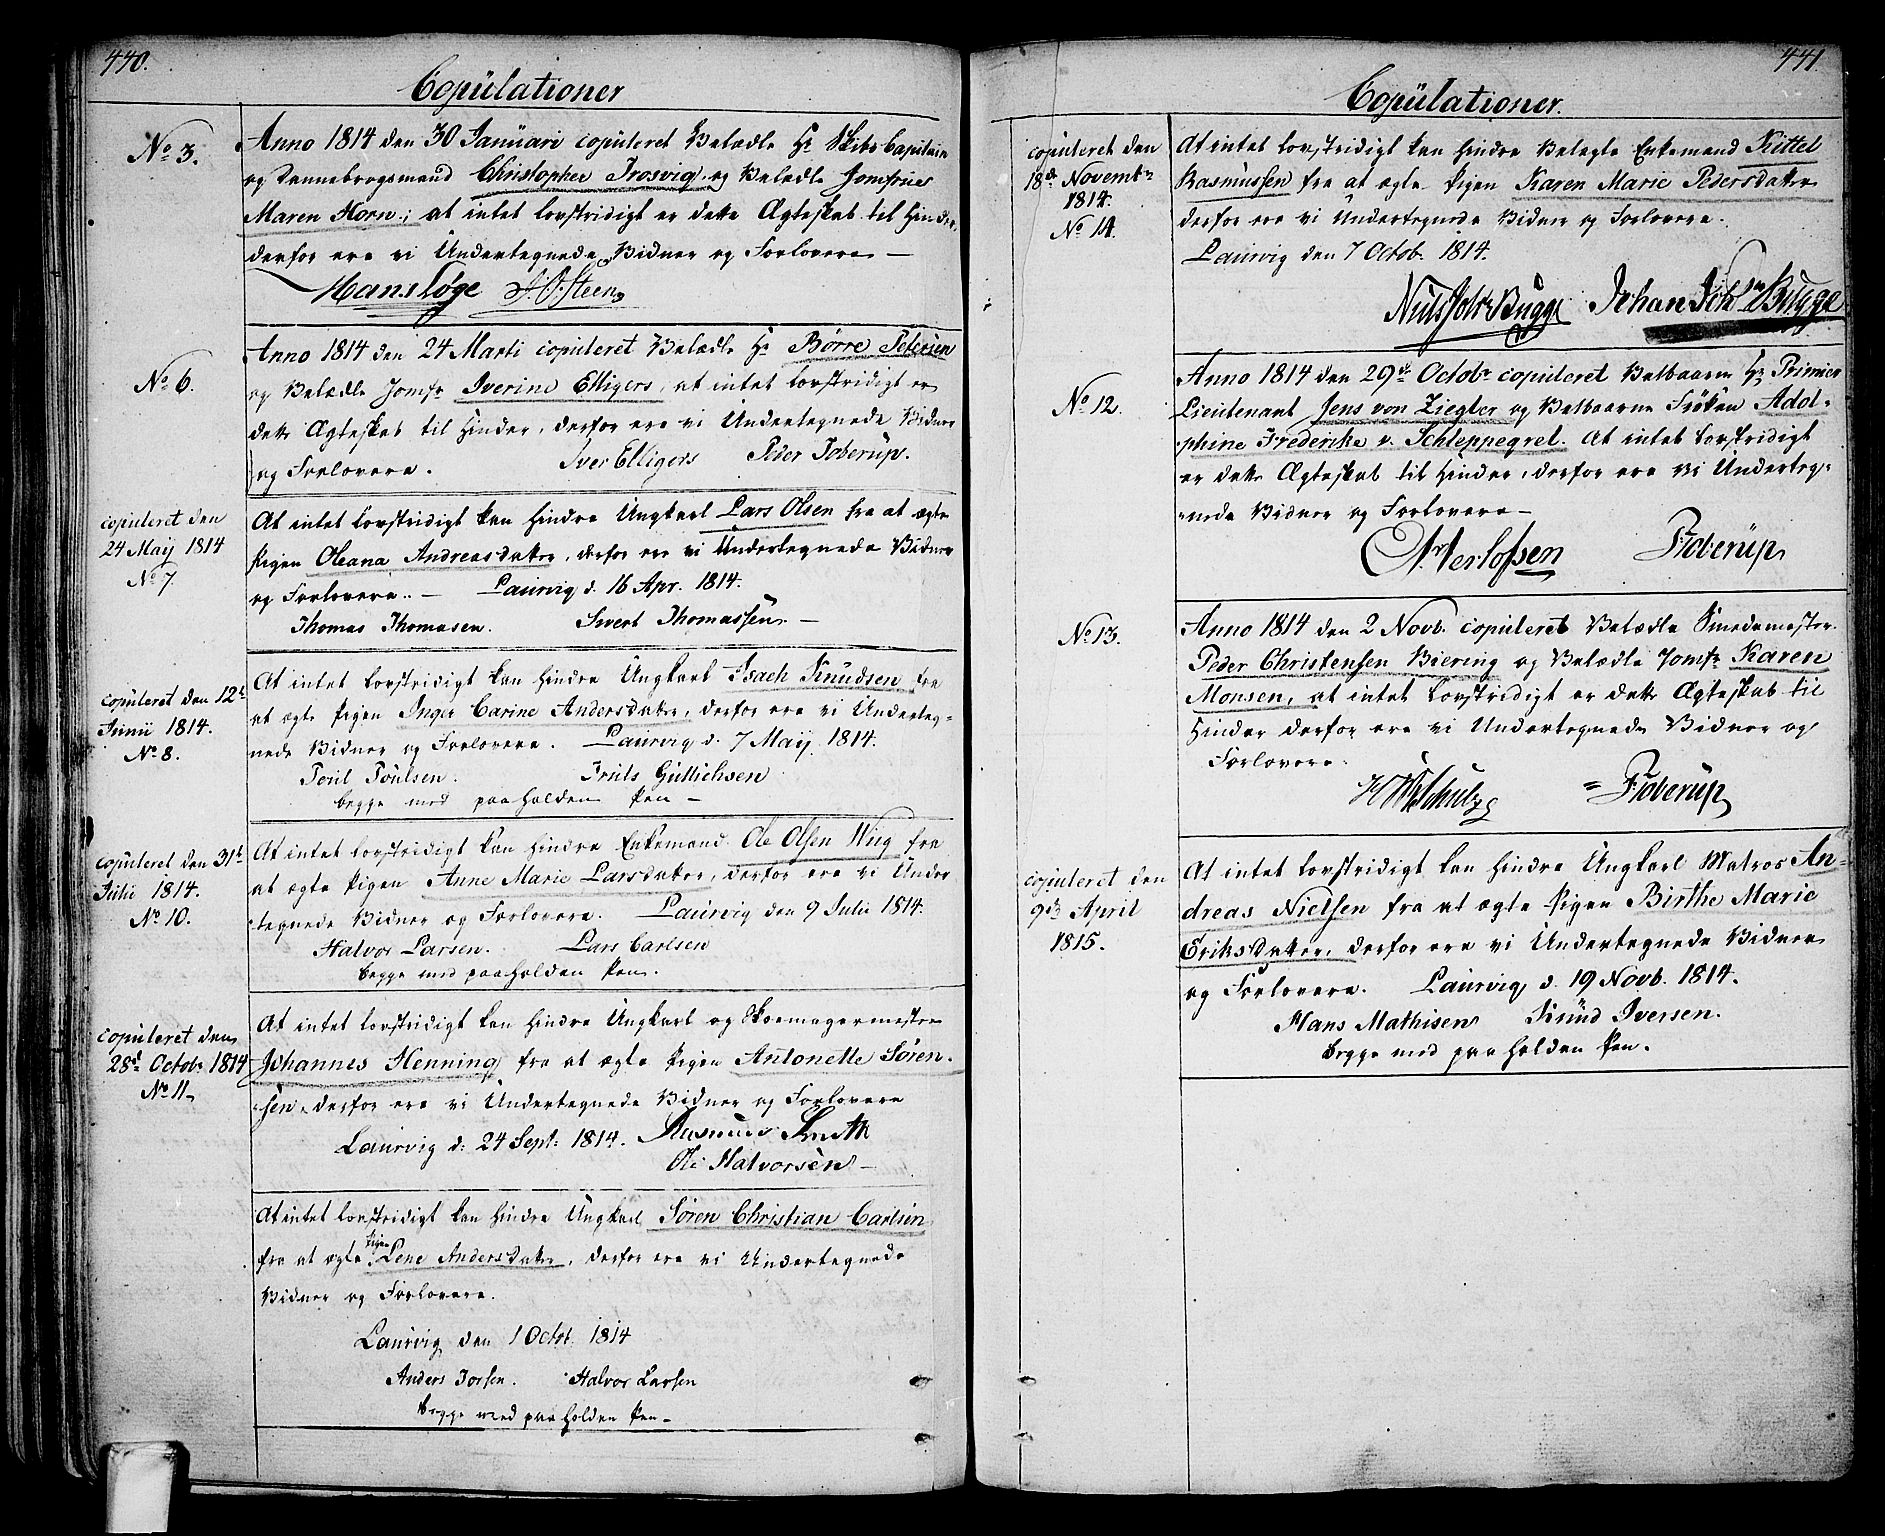 440.
Copulationer
No 3.
Anno 1814 den 30 Januari copuleret Velædle Hr Skibs Capitain
og Dannebrogsmand Christopher Trosvig, og Velædle Jomfrue
Maren Horn; at intet lovstridigt er dette Ægteskab til Hinder,
derfor ere vi Undertegnede Vidner og Forlovere —
Hans Løge
No 6.
Anno 1814 den 24 Marti copuleret Velædle Hr Børre Petersen
og Velædle Jomfr Iverine Elligers, at intet lovstridigt er
dette Ægteskab til Hinder, derfor ere vi Undertegnede Vidner
og Forlovere. Iver Elligers Peder Toberup.
copuleret den
24 Maij 1814
No 7.
At intet lovstridigt kan hindre Ungkarl Lars Olsen fra at ægte
Pigen Oleana Andreasdatter, derfor ere vi Undertegnede Vidner
og Forlovere. — Laurvig d. 16 Apr. 1814.
Thomas Thomasen. Sivert Thomassen. —
copuleret den 12te
Junii 1814.
No 8.
At intet lovstridigt kan hindre Ungkarl Isach Knudsen fra
at ægte Pigen Inger Carine Andersdatter, derfor ere vi Underteg-
nede Vidner og Forlovere. Laurvig d. 7 Maij 1814.
Poul Poulsen. Truls Gullichsen
begge med paaholden Pen —
copuleret den 31te
Julii 1814.
No 10.
At intet lovstridigt kan hindre Enkemand Ole Olsen Wiig fra
at ægte Pigen Anne Marie Larsdatter, derfor ere vi Under
tegnede Vidner og Forlovere. Laurvig den 9 Julii 1814.
Halvor Larsen. Lars Carlsen
begge med paaholden Pen.
copuleret den
28de Octobr 1814
No 11
At intet lovstridigt kan hindre Ungkarl og Skoemagermester
Johannes Henning fra at ægte Pigen Antonette Søren-
sen, derfor ere vi Undertegnede Vidner og Forlovere
Laurvig d: 24 Sept: 1814. Rasmus Smith
Ole Halvorsen —
At intet lovstridigt kan hindre Ungkarl Søren Christian Carlsen
fra at ægte Pigen Lene Andersdatter, derfor ere vi Undertegnede
Vidner og Forlovere.
Laurvig den 1 Octob. 1814
Anders Torsen. Halvor Larsen
begge med paaholden Pen —
441.
Copulationer.
copuleret den
18de Novembr
1814.
No 14.
At intet lovstridigt kan hindre Velagte Enkemand Kittel
Rasmussen fra at ægte Pigen Karen Marie Pedersdatter
derfor ere vi Undertegnede Vidner og Forlovere.
Laurvig den 7 Octob. 1814.
Niels Johs Bugge Johan Bugge
No 12.
Anno 1814 den 29de Octobr copuleret Velbaarne Hr Primier
Lieutenant Jens von Ziegler og Velbaarne Frøken Adol-
phine Frederike v. Schleppegrel. At intet lovstridigt
er dette Ægteskab til Hinder, derfor ere vi Underteg-
nede Vidner og Forlovere —
Oerlofsen P. Toberup
No 13.
Anno 1814 den 2 Novb. copuleret Velædle Smedemester
Peder Christensen Biering og Velædle Jomfr Karen
Monsen, at intet lovstridigt er dette Ægteskab til
Hinder derfor ere vi Undertegnede Vidner og
Forlovere.
Schulz P. Toberup
copuleret den
9de April
1815.
At intet lovstridigt kan hindre Ungkarl Matros An-
dreas Nielsen fra at ægte Pigen Birthe Marie
Eriksdatter, derfor ere vi Undertegnede Vidner
og Forlovere. Laurvig d. 19 Novb. 1814.
Hans Mathisen Knud Iversen.
begge med paaholden Pen.